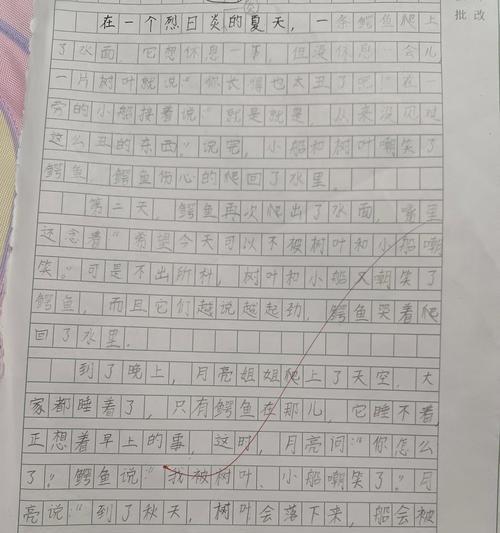 批改
在一个烈日炎的夏天，一条鳄鱼爬上
了水面，它想休息一事，但没休息一会儿
一片树叶就说："你长得也太丑了吧！"在一
旁的小船接着说："就是就是，从来没见过
这么丑的东西。"说完，小船和树叶嘲笑了
鳄鱼，鳄鱼伤心的爬回了水里。
第二天，鳄鱼再次爬出了水面，嘴里
还念着"希望今天可以不被树叶和小船嘲
笑。"可是不出所料，树叶和小船又嘲笑了
鳄鱼，而且它们越说越起劲，鳄鱼哭着爬
回了水里。
到了晚上，月亮姐姐爬上了天空，大
家都睡着了，只有鳄鱼在那儿，它睡不着，
正想着早上的事，这时，月亮问："你怎么
了？"鳄鱼说："我被树叶、小船嘲笑了。"月
亮说："到了秋天，树叶会落下来，船会被